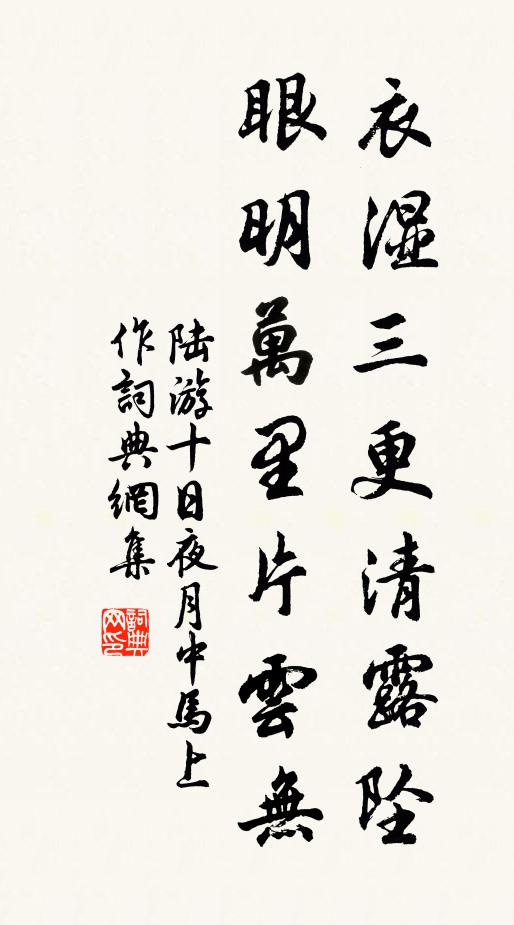 衣濕三更清露墜
眼明萬里片雲無
陆游十日夜月中馬上
作詞典網集
詞典
网印